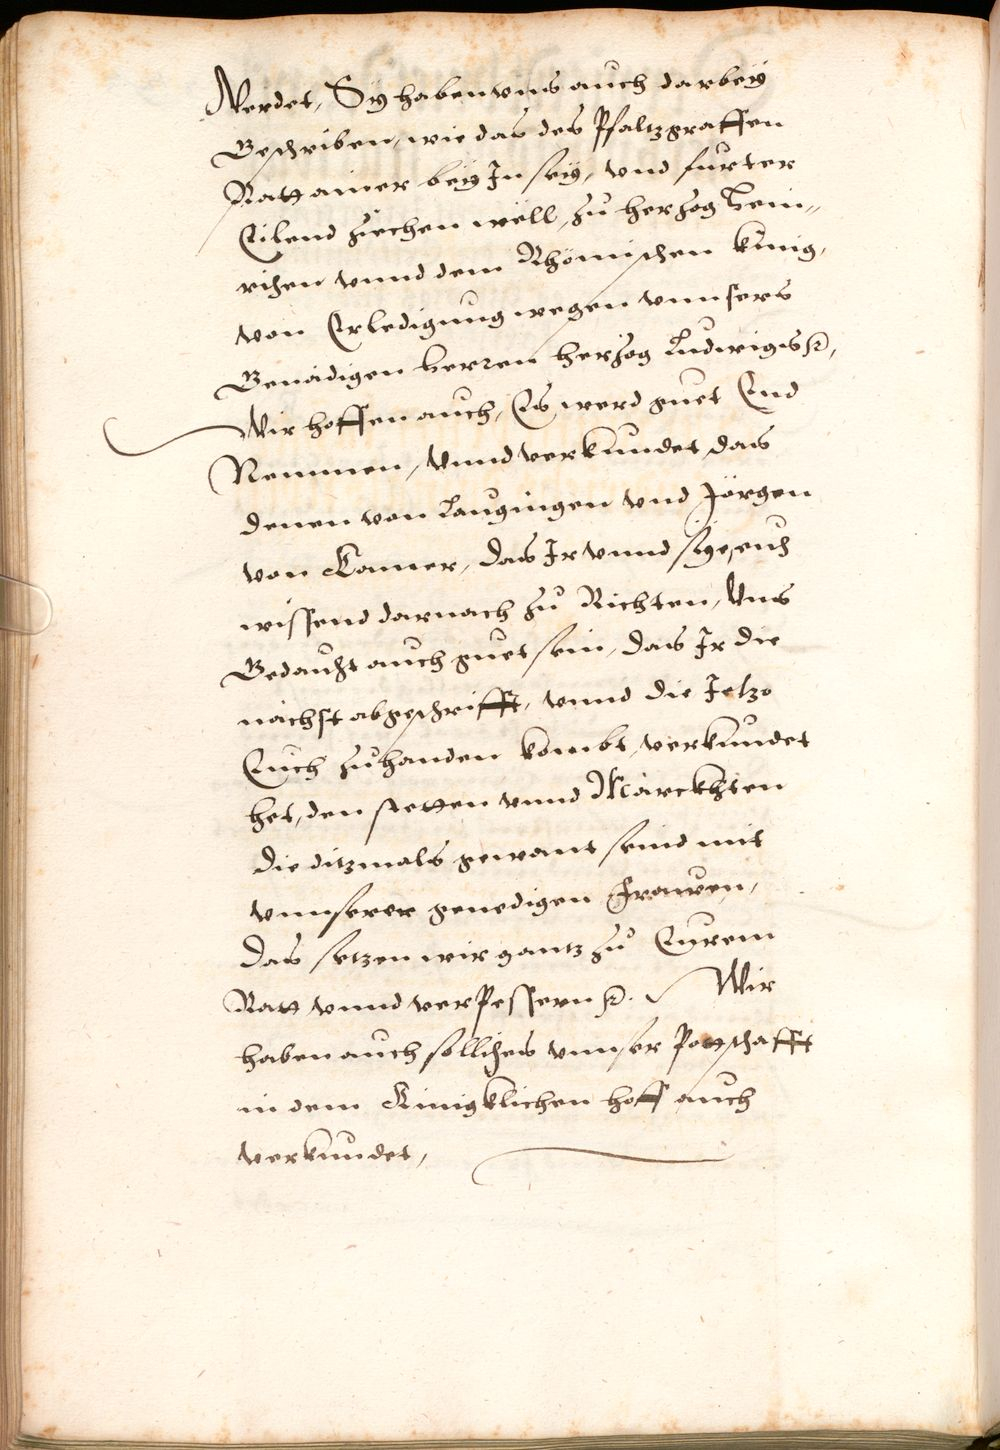 Werdet, Sy haben vns auch darbey
Geschriben, wie das des Pfaltzgraffen
Ratt ainer bey In sey, vnd furter
Eilend ziechen wöll, zu herzog Hein„
richen vnnd dem Rhömischen künig,
von Erledigung wegen vnnsers
Genädigen herren herzog Ludwigs ꝛc,
Wir hoffen auch, Es werd guet End
Nemmen, Vnnd verkundet das
denen von Laugingen vnd Jörgen
von Camer, das Ir vnnd sy euch
wissend darnach zu Richten, Vns
Gedaucht auch guet sein, das Ir die
nächst abgeschrifft, vnnd die Jetzo
Euch zuhanden kombt, verkundet
het, den stetten vnnd Märckhten
die ditzmals gewant seind mit
vnnserer genedigen Frawen,
das setzen wir gantz zu Eyrem
Ratt vnnd verPessern ꝛc. Wir
haben auch sollches vnnser Pottschafft
in dem Künigklichen hoff auch
verkundet,